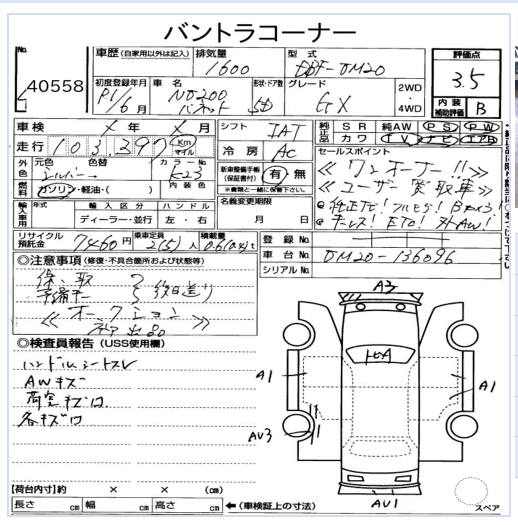 バントラコーナー
No. 40558
車歴(自家用以外は記入) 排気量 1600 型式 DBF-DM20 評価点 3.5
初度登録年月 R1/6月 車名 NV200 バネット 形状・ドア数 5D グレード GX 2WD・4WD 内装補助評価 B
車検 年 月 シフト IAT 純正品 SR 純AW PS PW
走行 103,397 Km マイル 冷房 AC カワ TV ナビ エアB
外色 元色 シルバー 色替 カラーNo. K23 新車整備手帳(保証書付) 有・無 セールスポイント
燃料 ガソリン・軽油・( ) 内装色 ※書類と一緒に保管下さい。 《ワンオーナー!!》
輸入車用 年式 輸入区分 ハンドル 名義変更期限 《ユーザー買取車》
ディーラー・並行 左・右 月 日 @純正ナビ!フルセグ!Bカメラ!
@キーレス!ETC!外AW!
リサイクル預託金 7460円 乗車定員 2(5)人 積載量 0.6(0.45)t 登録No.
車台No. DM20-136096
シリアルNo.
◎注意事項(修復・不具合箇所および状態等)
保、取
予備キー 後日送り
《オークション
初出品》
◎検査員報告(USS使用欄)
ハンドルシートスレ
AWキズ
荷室キズ凹
各キズ凹
A3
A1
A1
AU3
AU1
【荷台内寸】約 × × (cm)
長さ cm 幅 cm 高さ cm ←(車検証上の寸法)
スペア